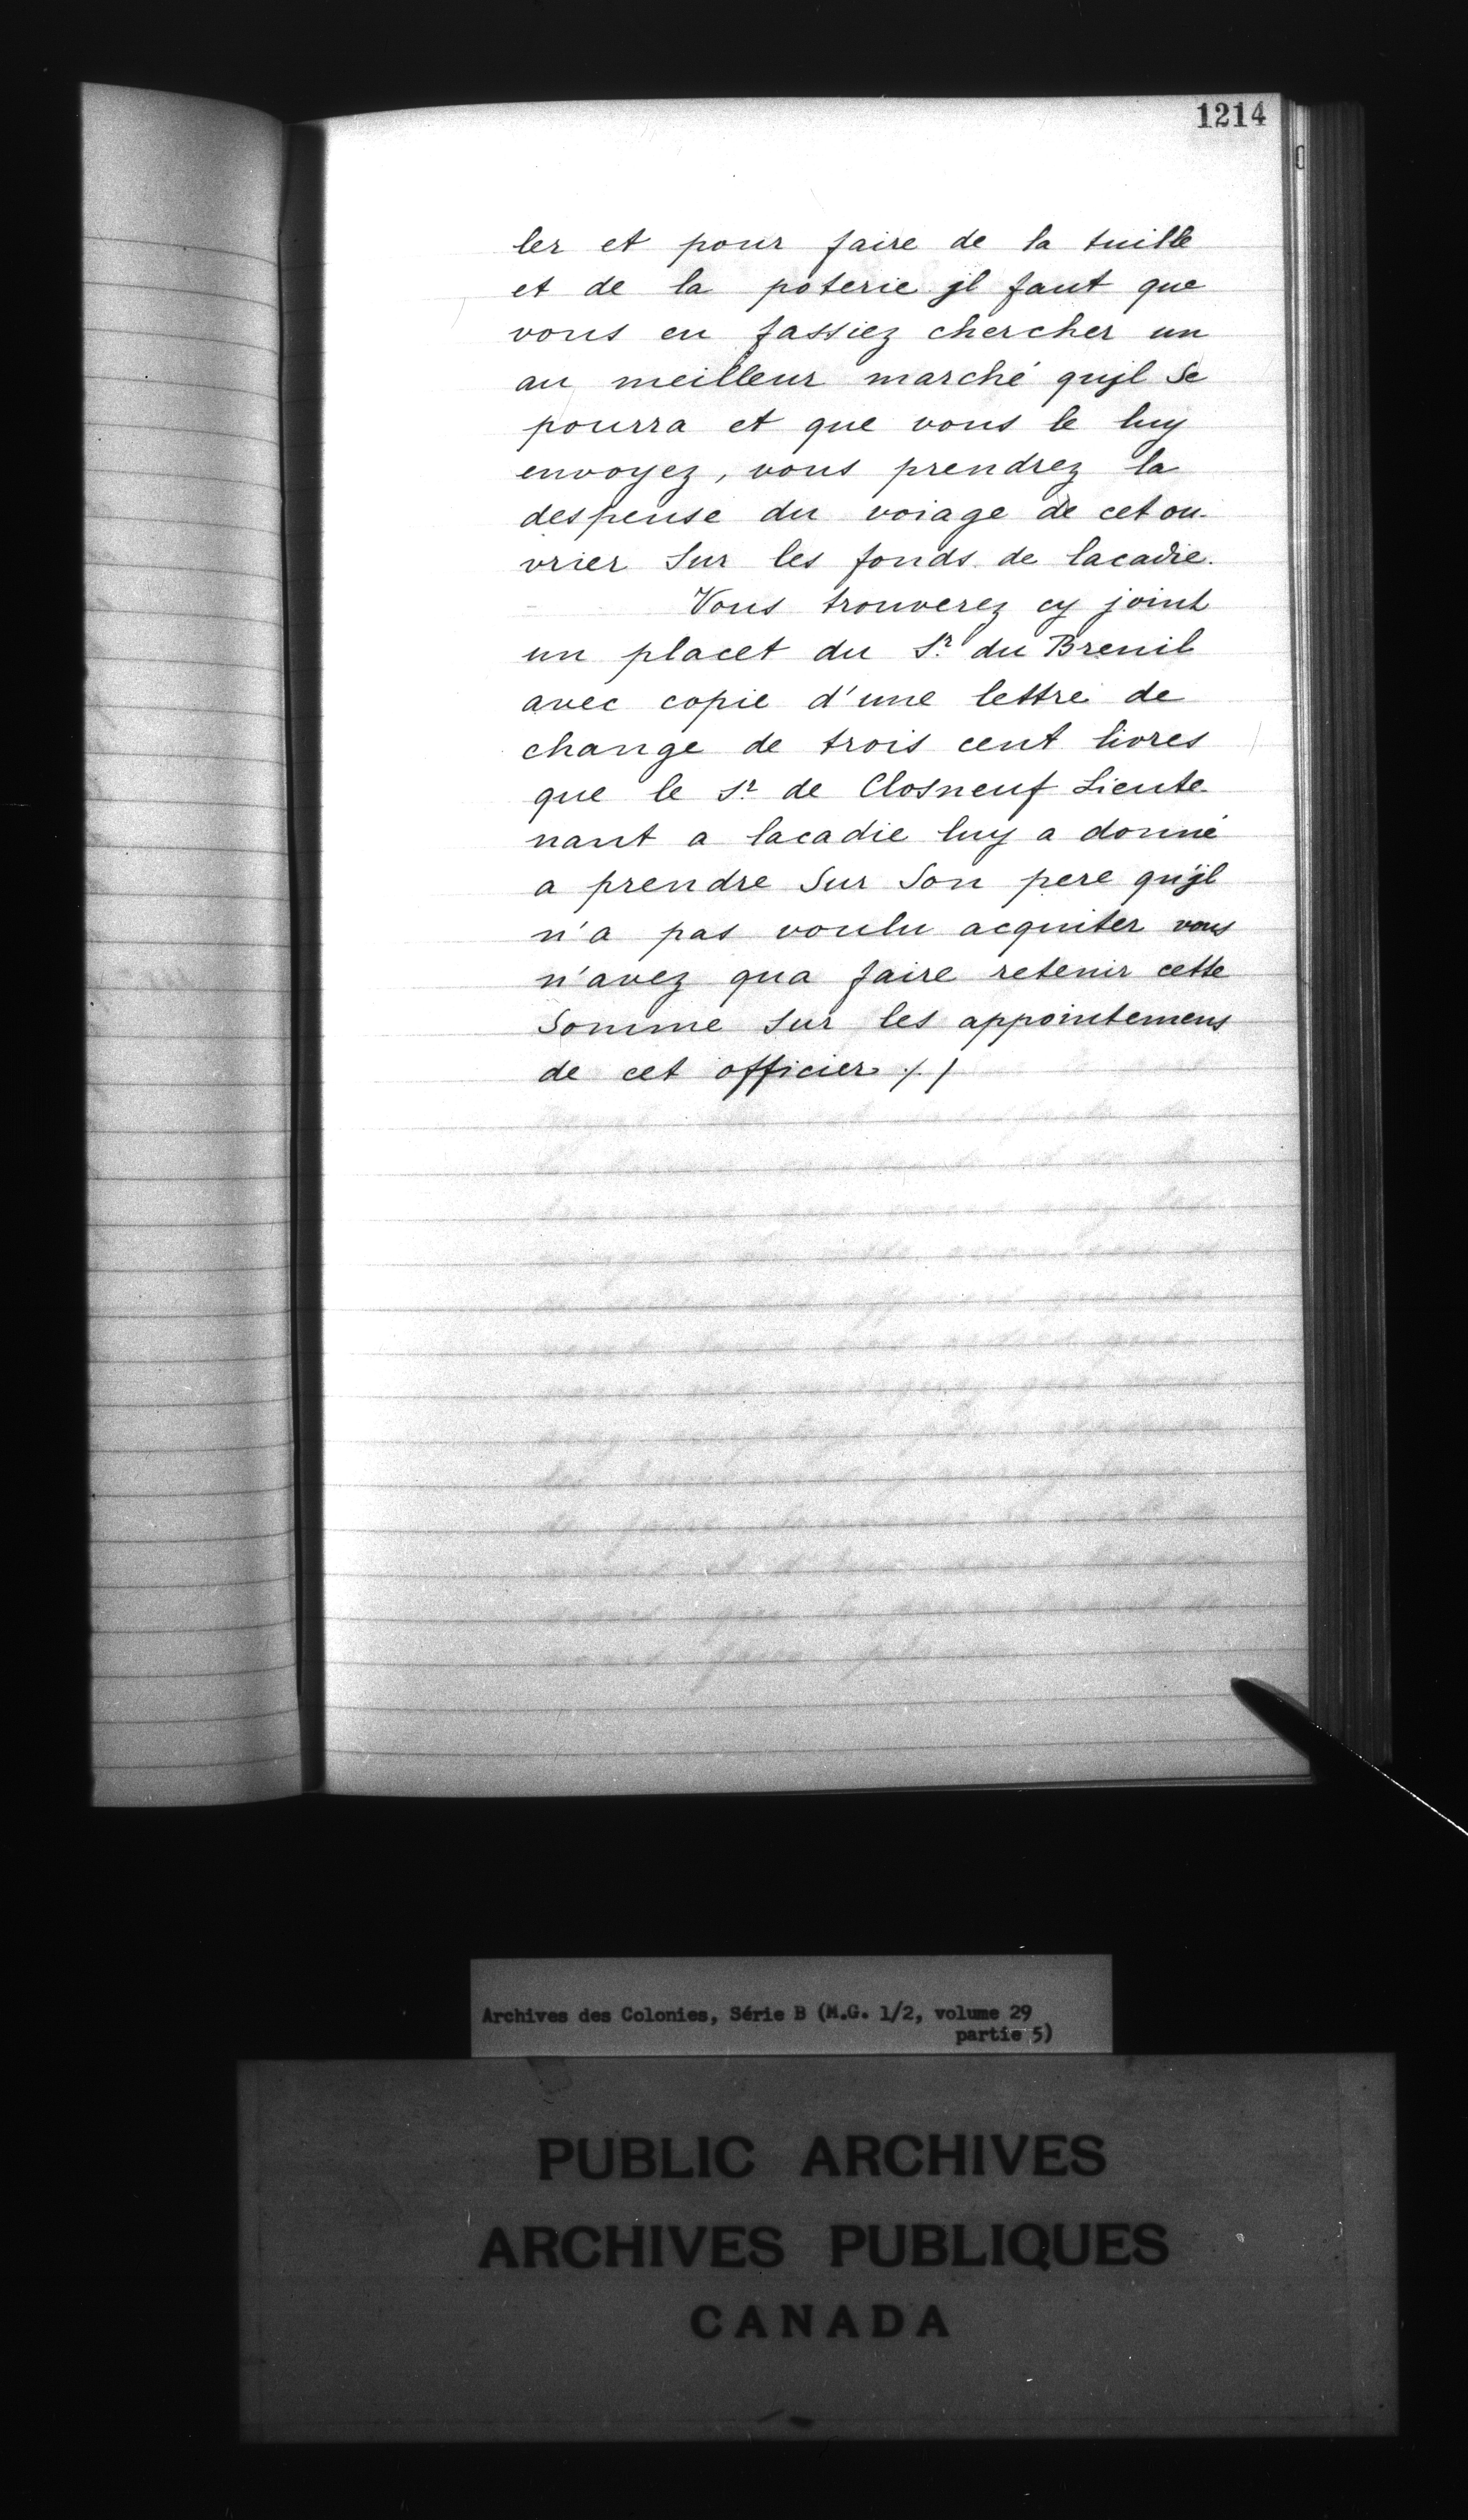 1214
ler et pour faire de la tuille
et de la poterie jl faut que
vous en fassiez chercher un
au meilleur marché qujl se
pourra et que vous le luy
envoyez, vous prendrez la
despense du voiage de cet ou-
vrier sur les fonds de lacadie.
Vous trouverez cy joint
un placet du Sr. du Breuil
avec copie d'une lettre de
change de trois cent livres
que le Sr. de Closneuf Lieute-
nant a lacadie luy a donné
a prendre sur son pere qujl
n'a pas voulu acquiter vous
n'avez qua faire retenir cette
somme sur les appointemens
de cet officier ./.
Archives des Colonies, Série B (M.G. 1/2, volume 29
partie 5)
PUBLIC ARCHIVES
ARCHIVES PUBLIQUES
CANADA